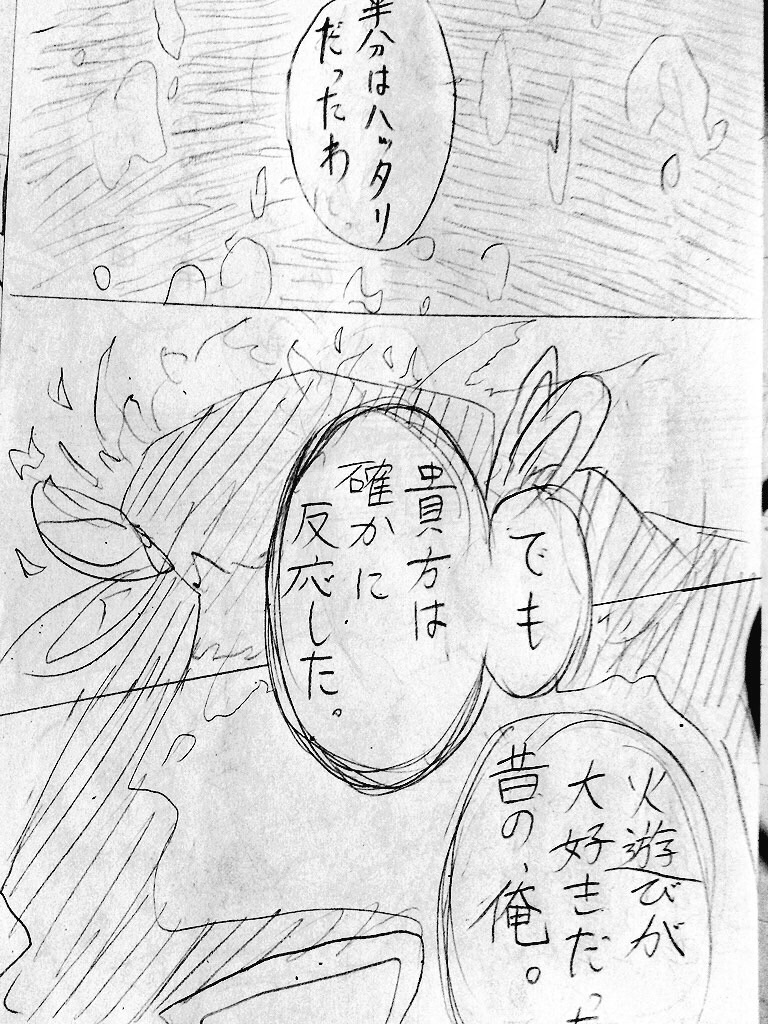 半分はハッタリ
だったわ。
でも
貴方は
確かに
反応した。
火遊びが
大好きだっ
昔の、俺。